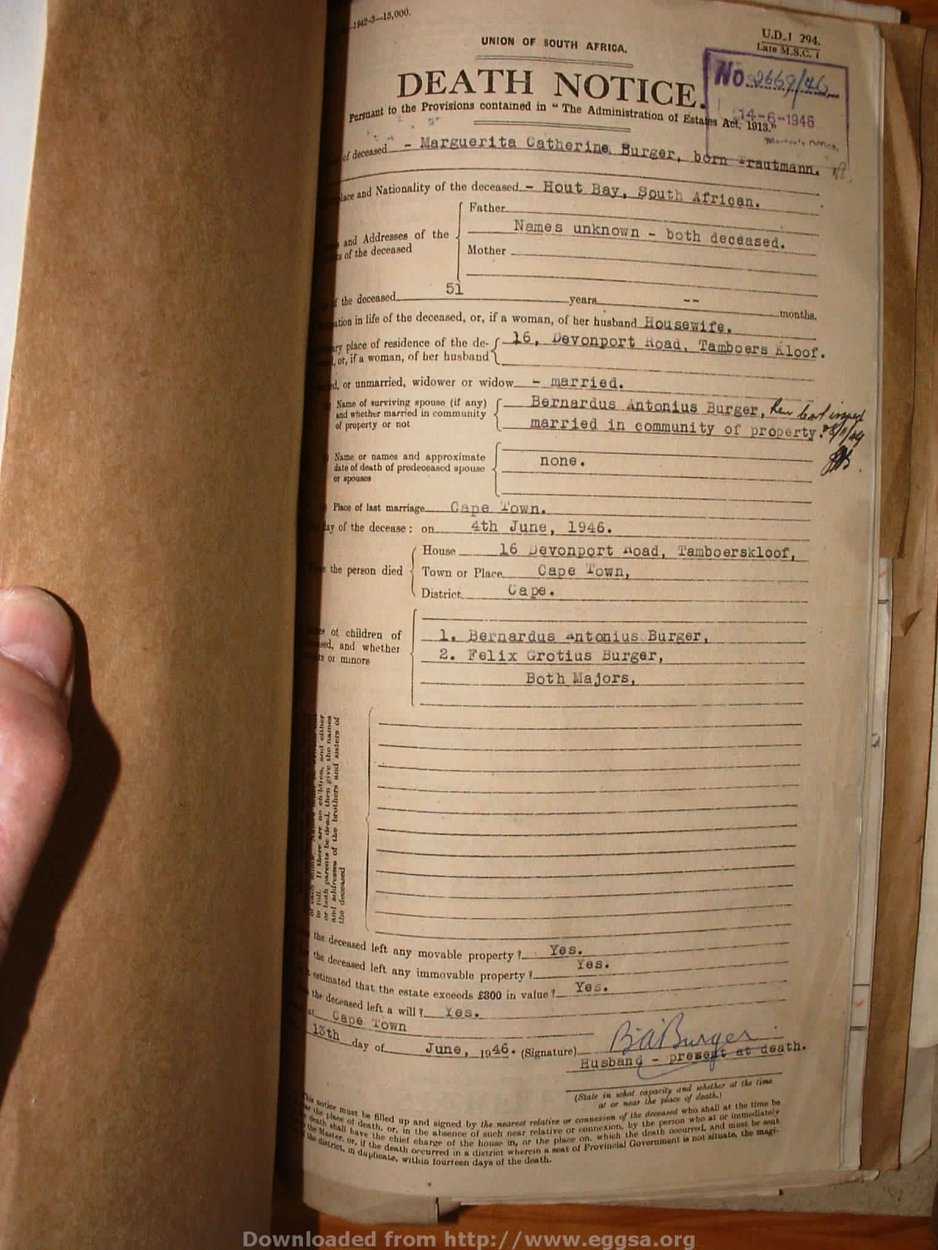 1942-3—15,000.
U.D.J 294.
Late M.S.C. 1
UNION OF SOUTH AFRICA.
No. 2669/46
DEATH NOTICE.
14-6-1946
Pursuant to the Provisions contained in "The Administration of Estates Act, 1913."
of deceased - Marguerita Catherine Burger, born Trautmann.
lace and Nationality of the deceased - Hout Bay, South African.
Father
and Addresses of the
Names unknown - both deceased.
s of the deceased
Mother
f the deceased 51 years -- months.
ation in life of the deceased, or, if a woman, of her husband Housewife.
ry place of residence of the de- 16, Devonport Road, Tamboers Kloof.
, or, if a woman, of her husband
d, or unmarried, widower or widow - married.
Name of surviving spouse (if any) Bernardus Antonius Burger,
and whether married in community married in community of property.
of property or not
Name or names and approximate none.
date of death of predeceased spouse
or spouses
Place of last marriage Cape Town.
ay of the decease: on 4th June, 1946.
House 16 Devonport Road, Tamboerskloof,
e the person died Town or Place Cape Town,
District Cape.
es of children of 1. Bernardus Antonius Burger,
sed, and whether 2. Felix Grotius Burger,
rs or minors Both Majors,
in full. If there are no children, and either
or both parents be dead, then give the names
and addresses of the brothers and sisters of
the deceased
the deceased left any movable property? Yes.
the deceased left any immovable property? Yes.
estimated that the estate exceeds £300 in value? Yes.
the deceased left a will? Yes.
at Cape Town
13th day of June, 1946. (Signature) B A Burger
Husband - present at death.
(State in what capacity and whether at the time
at or near the place of death.)
This notice must be filled up and signed by the nearest relative or connexion of the deceased who shall at the time be
the place of death, or, in the absence of such near relative or connexion, by the person who at or immediately
death shall have the chief charge of the house in, or the place on, which the death occurred, and must be sent
the Master, or, if the death occurred in a district wherein a seat of Provincial Government is not situate, the magi-
the district, in duplicate, within fourteen days of the death.
Downloaded from http://www.eggsa.org